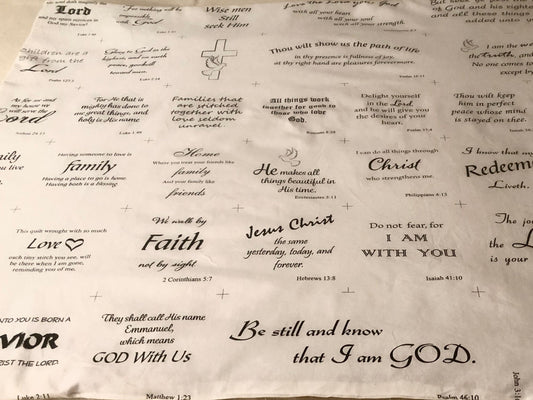 and my spirit rejoices in
Lord
God my Savior!
For nothing will be
impossible
with God
Luke 1:37
Wise men
Still
seek Him
with all your heart
and with all your soul
and with all your strength.
of God and his
and all these things
added unto
Children are a
gift from the
Lord
Psalm 127:3
Glory to God in the
highest, and on earth
peace, goodwill
toward men.
Luke 2:14
Thou will show us the path of life
in thy presence is fullness of joy,
at thy right hand are pleasures forevermore.
Psalm 16:11
I am the
the truth, and
No one comes to
except by
As for me and
my house we
will serve the
Lord
Joshua 24:15
For He that is
mighty has done to
me great things, and
holy is His name
Luke 1:49
Families that
are stitched
together with
love seldom
unravel.
All things work
together for good to
those who love
God.
Romans 8:28
Delight yourself
in the Lord
and he will give you
the desires of your
heart.
Psalm 37:4
Thou will keep
him in perfect
peace whose mind
is stayed on thee.
Isaiah
family
you live
Having someone to love is
family
Having a place to go is home
Having both is a blessing
Home
Where you treat your friends like
family
And your family like
friends
He makes all
things beautiful in
His time.
Ecclesiastes 3:11
I can do all things through
Christ
who strengthens me.
Philippians 4:13
I know that my
Redeemer
Liveth.
This quilt wrought with so much
Love
each tiny stitch you see, will
be there when I am gone,
reminding you of me.
We walk by
Faith
not by sight
2 Corinthians 5:7
Jesus Christ
the same
yesterday, today, and
forever.
Hebrews 13:8
Do not fear, for
I AM
WITH YOU
Isaiah 41:10
The joy
the L
is your
UNTO YOU IS BORN A
VIOR
CHRIST THE LORD.
Luke 2:11
They shall call His name
Emmanuel,
which means
GOD With Us
Matthew 1:23
Be still and know
that I am GOD.
Psalm 46:10
John 3:1